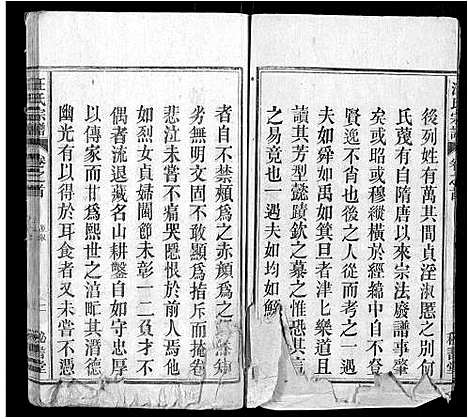 汪氏宗譜
卷之首
後列姓有萬其間貞淫淑慝之別何
氏蔑有自唐以來宗法廢譜事肇
矣或昭或穆縱橫於經緯中自不桑
然可指迨後之人從而考之一遇
夫如舜如禹如皋如津上樂道且
讀其芳型懿蹟欽之慕之惟恐行
之易竟也一遇夫如均如鯀
者自不禁頰爲之
劣無明文固不敢顯爲指斥而掩卷
悲泣未嘗不痛哭隱恨於前人焉他
如烈女貞婦閫節未彰一二負才不
偶者流退藏名山耕鑿自如守忠厚
以傳家而甘爲熙世之湻甿其潛德
幽光有以得於耳食者又未嘗不
汪氏宗譜
卷之首
秘書堂